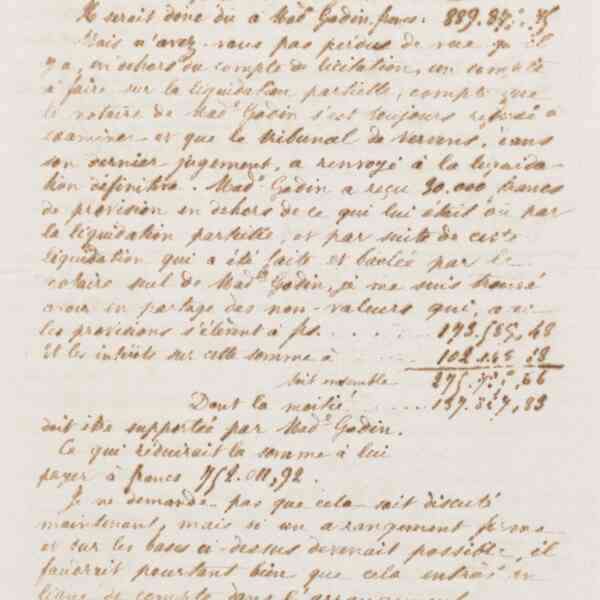 Il serait donc du à Mad. Godin francs. 889.8 ,75
Mais n'avez-vous pas perdu de vue qu'il
y a, en dehors du compte de licitation, un compte
à faire sur la liquidation partielle, compte que
le notaire de Mad. Godin s'est toujours refusé à
examiner et que le tribunal de Vervins, dans
son dernier jugement, a renvoyé à la liquida-
tion définitive. Mad. Godin a reçu 30.000 francs
de provision en dehors de ce qui lui était dû par
la liquidation partielle, et par suite de cette
liquidation qui a été faite et par le
notaire seul de Mad. Godin, je me suis trouvé
avoir en partage des non-valeurs qui, avec
les provisions s'élèvent à frs. . . . . . 173.585,48
Et les intérêts sur cette somme à . . . . 102. ,18
soit ensemble 275. ,66
Dont la moitié . . . . . 137.8 7,83
doit être supportée par Mad. Godin.
Ce qui réduirait la somme à lui
payer à francs 752.011,92.
Je ne demande pas que cela soit discuté
maintenant, mais si un arrangement ferme
et sur les bases ci-dessus devenait possible, il
faudrait pourtant bien que cela entrât en
ligne de compte dans l'arrangement